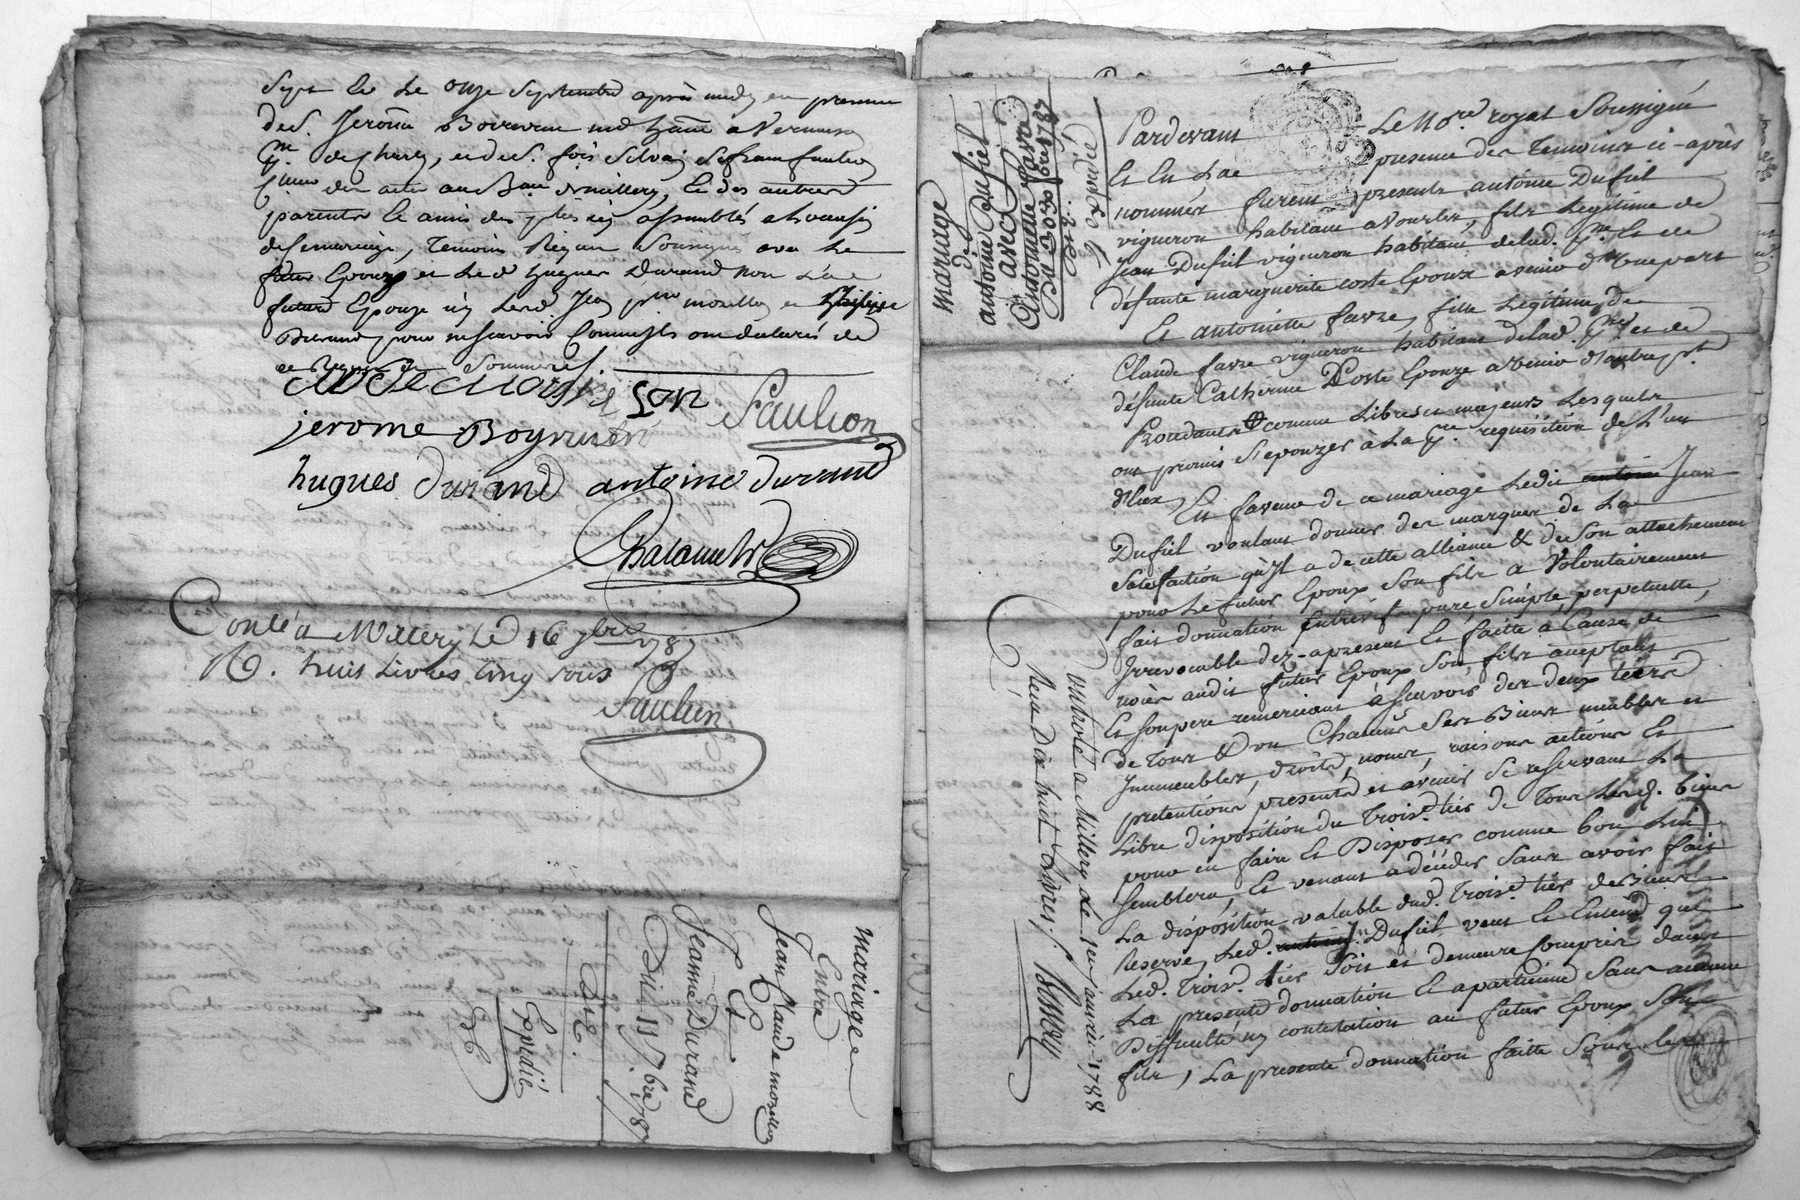 Sept le le onze Septembre après midy en presence
de S. Jerôme Boiron md a Vernaison
de Charly, et de S. fois Silvain
des actes au de millery, & des autres
parents & amis des pties assemblés
de ce mariage, Temoins Requis Soussignés avec le
futur Epoux et led. hugues Durand non la
future Epouze ny led. Jean morellon et Philippe
Durand pour ne sçavoir Comme ils ont declarés de
ce Requis & Sommés.
Faulion
jerome Boyron
hugues durand antoine durand
Conlé a Millery le 16 7bre 1787
R. huit Livres cinq sous
mariage
Entre
Jean Claude morellon
Et
Jeanne Durand
Du 11 7bre 1787
Expédié
mariage
de
antoine Dufiel
avec
Antoinette favre
Du 30 Xbre 1787
Expedié
Pardevant Le No.re royal Soussigné
Et En La presence des Temoins ci-après
nommés furent presents antoine Dufiel
vigneron habitant a Vourles, fils Legitime de
Jean Dufiel vigneron habitant de lad. p.sse Et de
défunte marguerite coste Epoux a venir d'une part
Et antoinette favre, fille Legitime de
Claude favre vigneron habitant de lad. p.sse et de
défunte Catherine Coste Epouze a venir d'autre p.t
Procedants comme Libres et majeurs Lesquels
ont promis S'epouzer à La p.re requisition de L'un
d'eux, En faveur de ce mariage Ledit antoine Jean
Dufiel voulant donner des marques de La
Satisfaction qu'Il a de cette alliance & de Son attachement
pour Le futur Epoux Son fils a Volontairement
fait donnation entrevifs pure, Simple, perpetuelle,
Irrevocable dez-apresent Et faitte à Cause de
noces audit futur Epoux Son fils acceptant
Et Son pere remerciant à Sçavoir des deux tiers
de Tous & un Chacuns Ses Biens meubles et
Immeubles, droits, noms, raisons actions Et
pretentions presents et avenir Se reservant La
Libre disposition du Trois.e tier de Tous Lesd. biens
pour en faire Et Disposer comme bon Lui
Semblera, Et venant a déceder Sans avoir fait
La disposition valable dud. Trois.e tier de Biens
Reservé, Led. antoine Jn Dufiel veut Et Entend que
Led. Trois.e tier Soit et demeure Compris dans
La presente donnation Et apartienne Sans aucune
Difficulté ny contestation au futur Epoux Son
fils, La presente donnation faitte Sous les
Controlé a Millery Le 1er Janvier 1788
Reçu Dix huit Livres